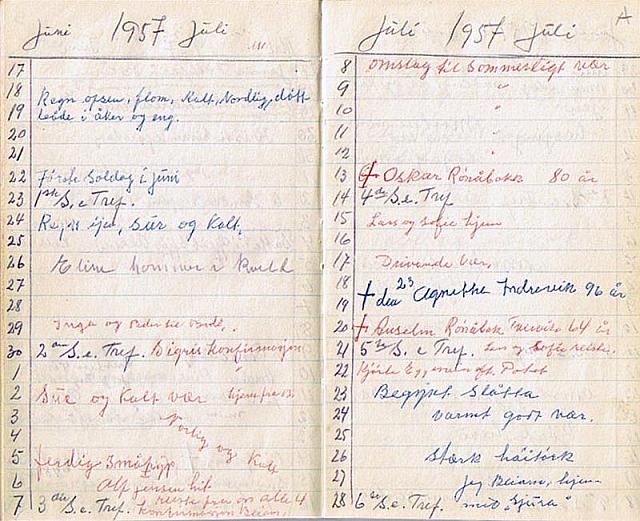 Juni 1957 Juli
17
18 Regn opsen, flom, Kalt, Nordlig, dått
19 leide i åker og eng.
20
21
22 Første Soldag i juni
23 1ste S. e Tref.
24 Regn igen, Sür og Kalt,
25
26 Eline kommer i Kveld
27
28
29 Inga og
30 2den S. e. Tref. Sigris konfirmasjon
1
2 Sür og Kalt vær hjem fra
3 Nordlig og Kalt
4
5 ferdig Småfyr
6 Alf Jensen hit
7 3die S. e. Tref. reiste fra os alle 4 konfirmasjon Beiarn.
Juli 1957 Juli A
8 omslag til Sommerligt vær
9 "
10 "
11 "
12 "
13 † Oskar Rönåbakk 80 år
14 4de S. e. Tref
15 Lars og Sofie hjem
16
17 Drivende Vær,
18
19 † den 23 Agnethe Indrevik 96 år
20 † Anselm Rönåbk 64 år
21 5te S. e Tref. Lars og Sofie reiste.
22
23 Begynt Slåtta
24 varmt godt vær.
25
26 stærk håitörk
27 Jeg Beiarn, hjem
28 6te S. e. Tref. med "Sjura"